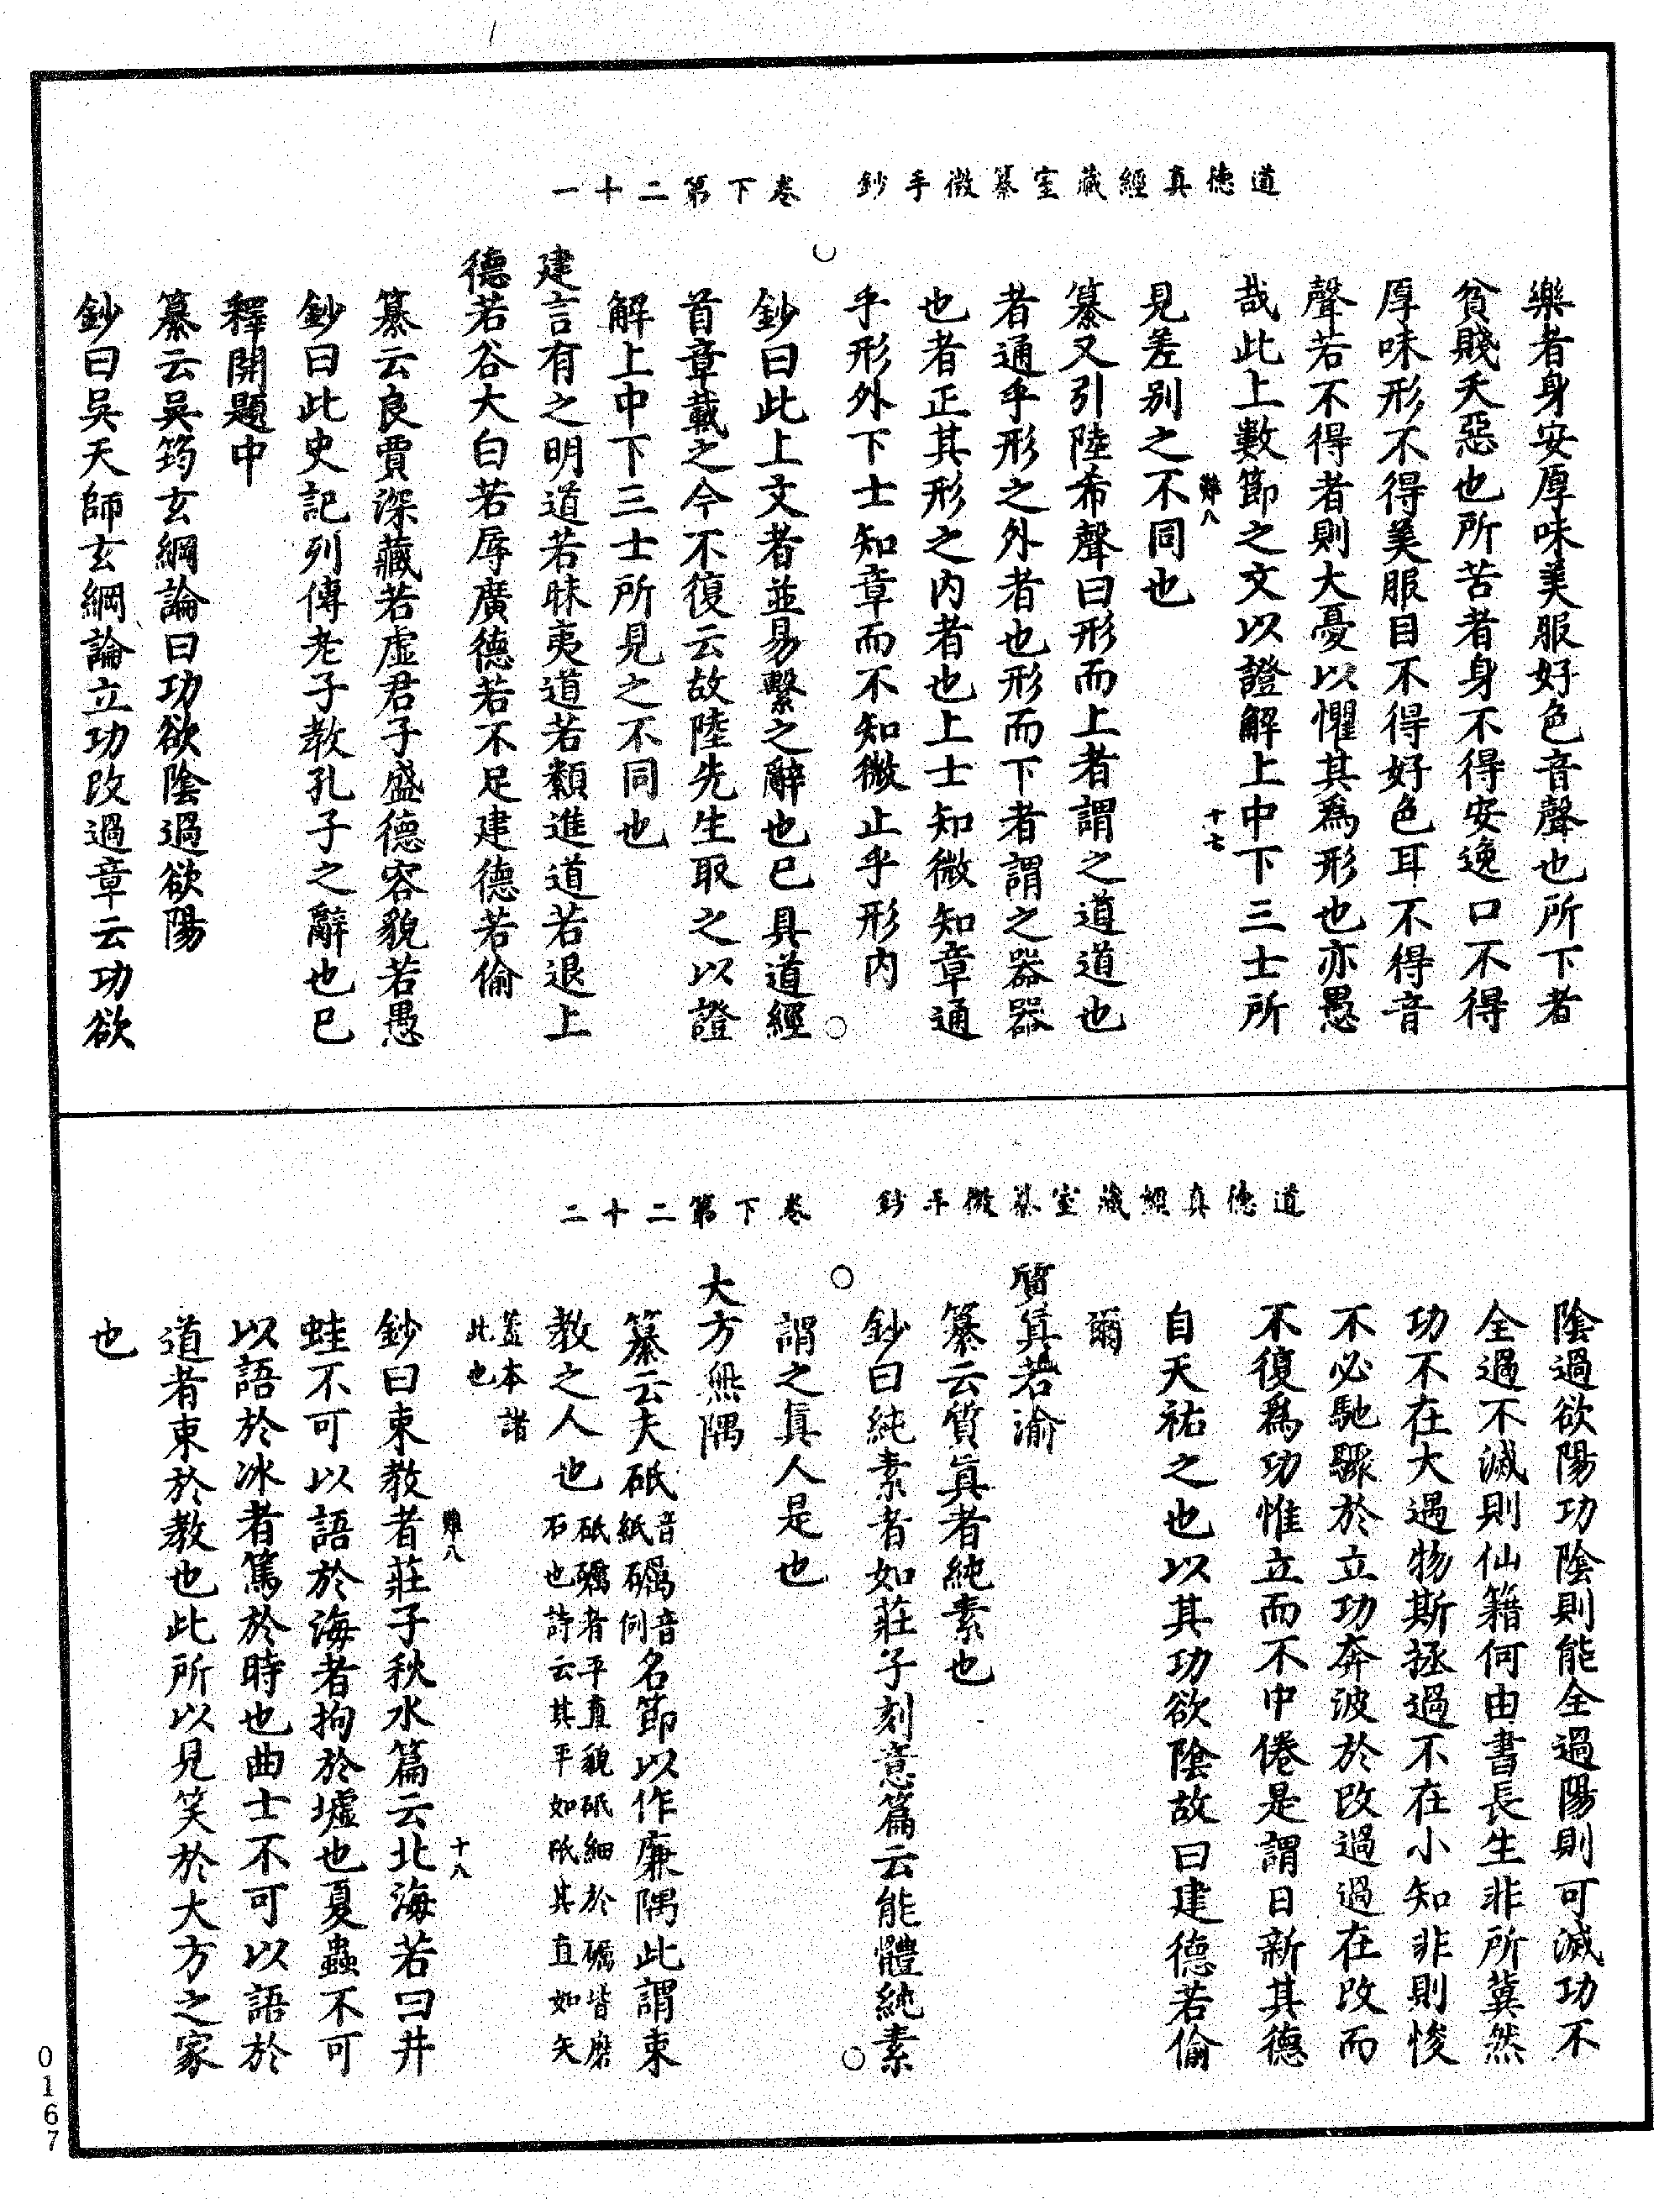 道德真經藏室纂微手鈔　卷下第二十一
樂者身安厚味美服好色音聲也所下者
貧賤夭惡也所苦者身不得安逸口不得
厚味形不得美服目不得好色耳不得音
聲若不得者則大憂以懼其爲形也亦愚
哉此上數節之文以證解上中下三士所
難八　十七
見差別之不同也
纂又引陸希聲曰形而上者謂之道道也
者通乎形之外者也形而下者謂之器器
也者正其形之内者也上士知微知章通
乎形外下士知章而不知微止乎形内
鈔曰此上文者並易繫之辭也已具道經
首章載之今不復云故陸先生取之以證
解上中下三士所見之不同也
建言有之明道若昧夷道若纇進道若退上
德若谷大白若辱廣德若不足建德若偷
纂云良賈深藏若虛君子盛德容貌若愚
鈔曰此史記列傳老子教孔子之辭也已
釋開題中
纂云吳筠玄綱論曰功欲陰過欲陽
鈔曰吳天師玄綱論立功改過章云功欲
道德真經藏室纂微手鈔　卷下第二十二
陰過欲陽功陰則能全過陽則可滅功不
全過不滅則仙籍何由書長生非所冀然
功不在大遇物斯拯過不在小知非則悛
不必馳驟於立功奔波於改過過在改而
不復爲功惟立而不中倦是謂日新其德
自天祐之也以其功欲陰故曰建德若偷
爾
質真若渝
纂云質真者純素也
鈔曰純素者如莊子刻意篇云能體純素
謂之真人是也
大方無隅
纂云夫砥音紙礪音例名節以作廉隅此謂束
教之人也砥礪者平直貌砥細於礪皆磨石也詩云其平如砥其直如矢
蓋本諸此也
難八　十八
鈔曰束教者莊子秋水篇云北海若曰井
蛙不可以語於海者拘於墟也夏蟲不可
以語於冰者篤於時也曲士不可以語於
道者束於教也此所以見笑於大方之家
也
0167